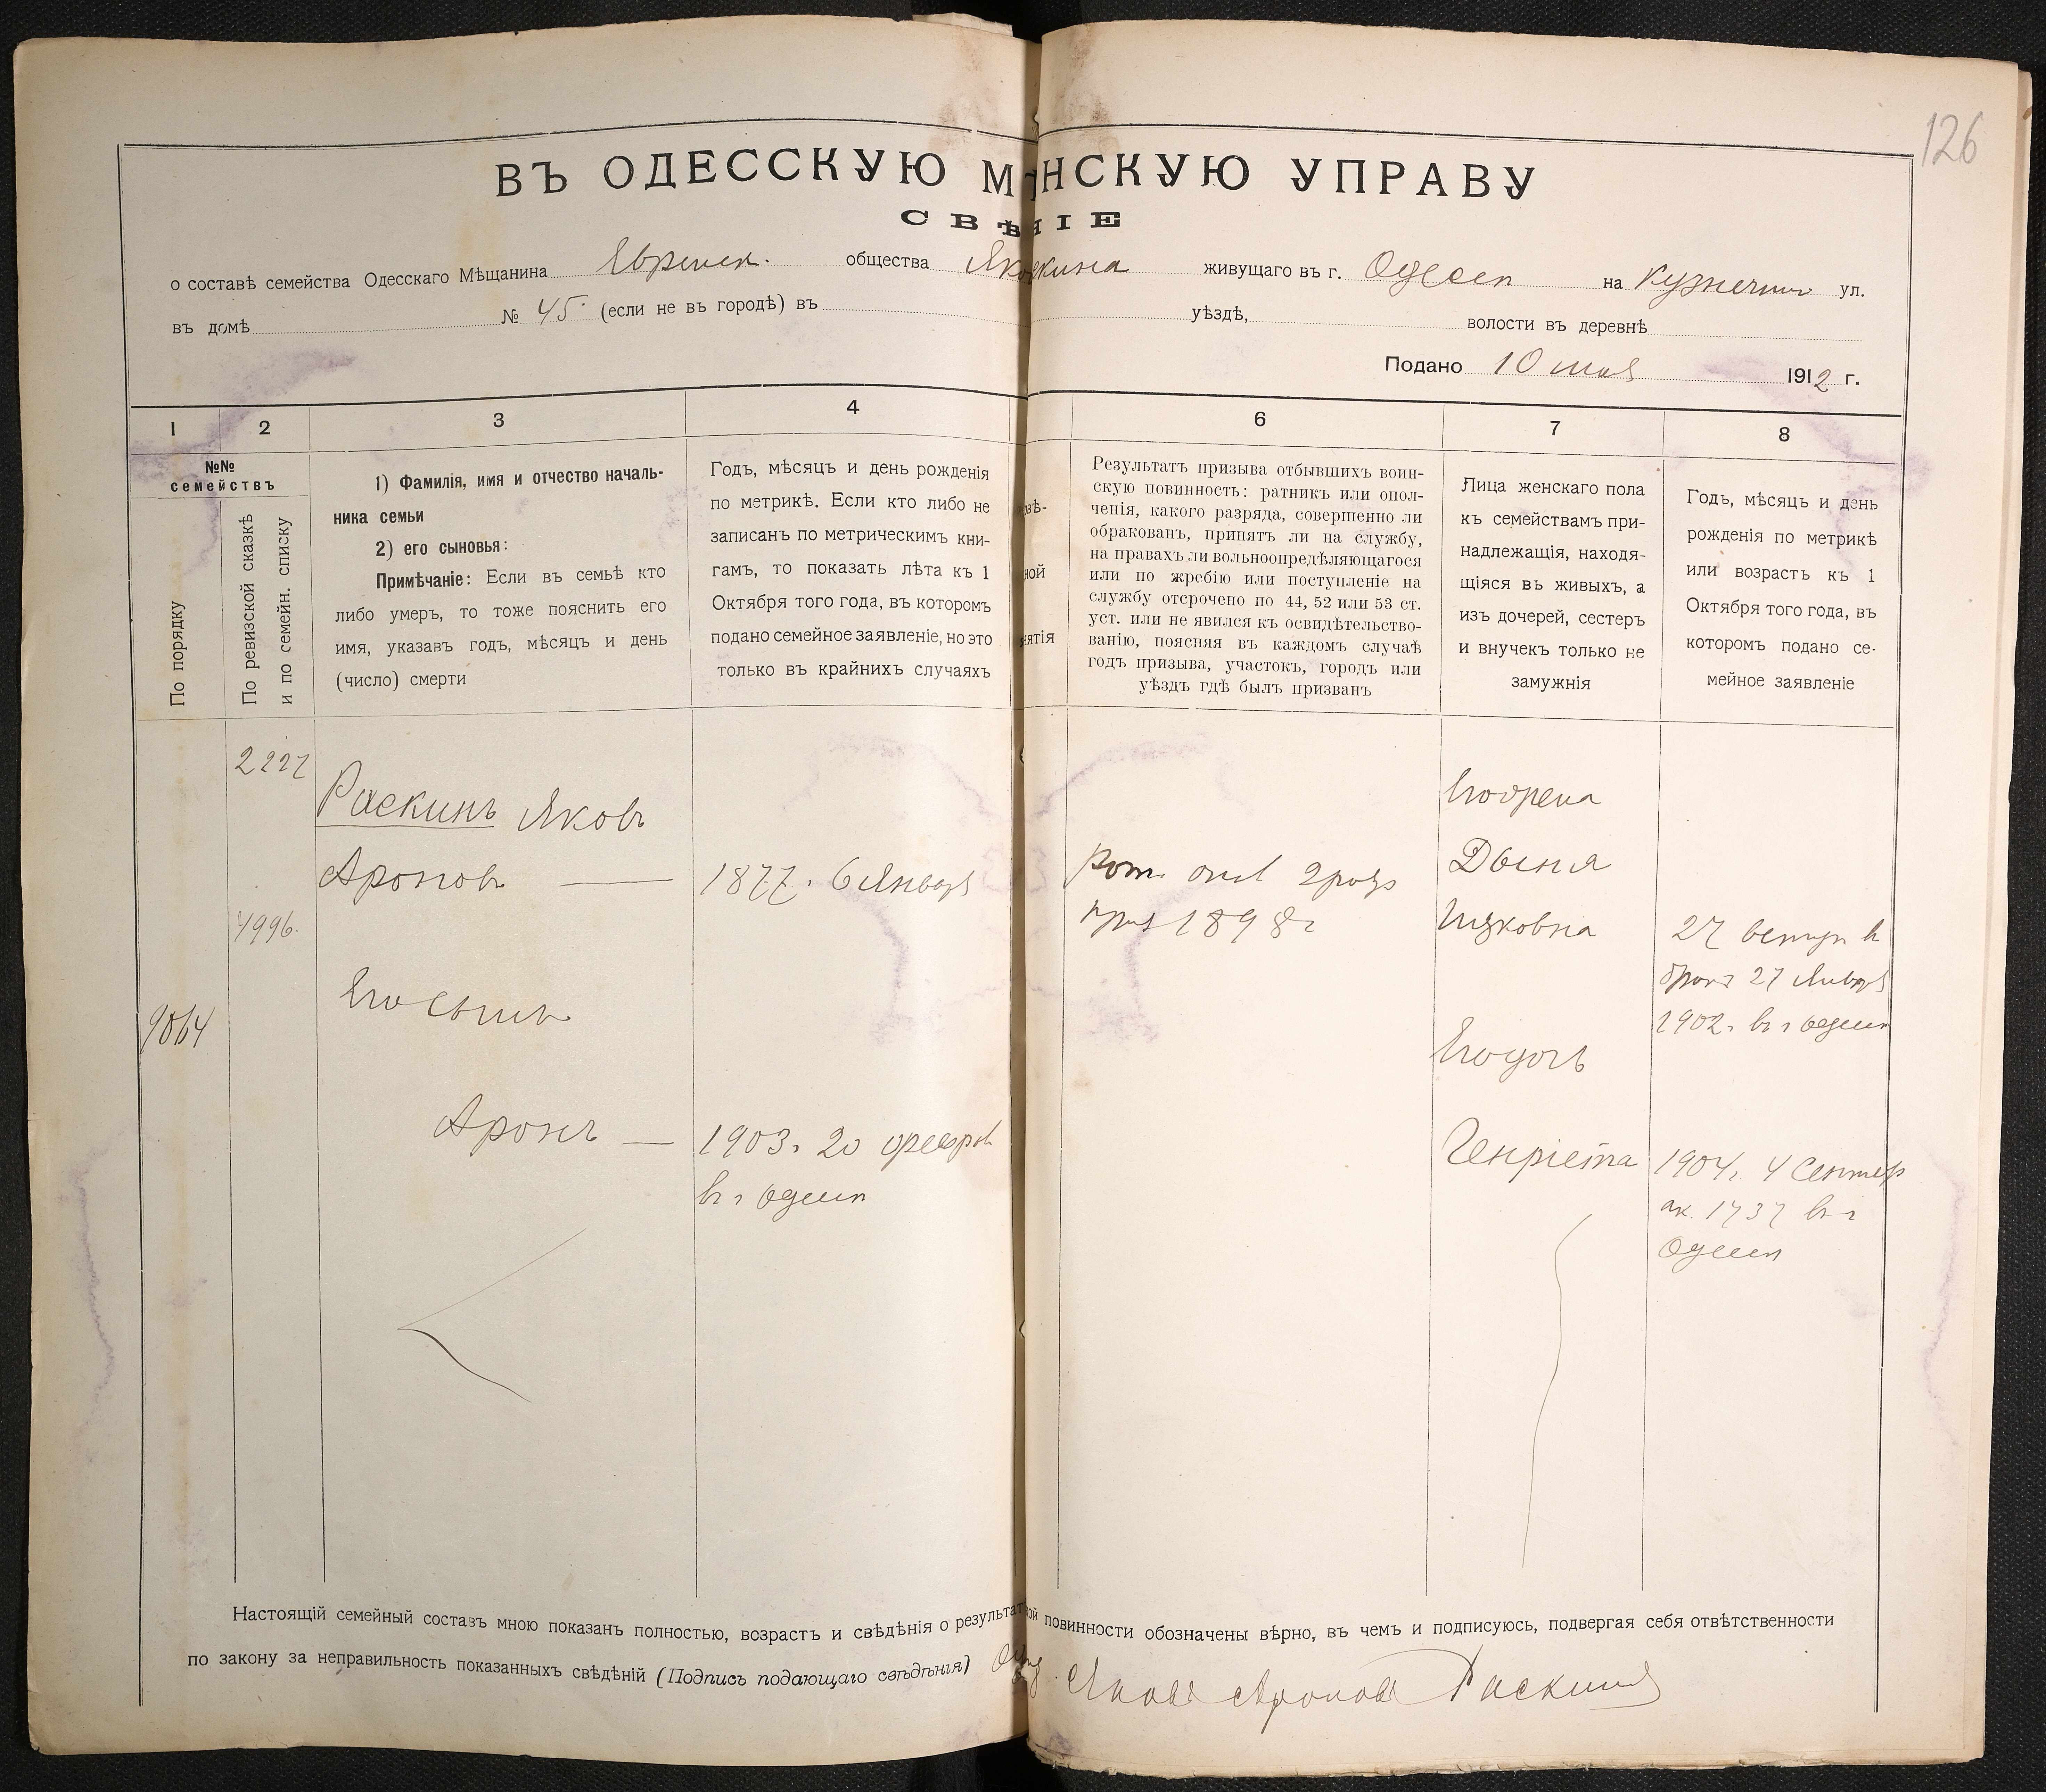 126
ВЪ ОДЕССКУЮ М НСКУЮ УПРАВУ
СВѢ НІЕ
о составѣ семейства Одесскаго Мѣщанина Еврейск. общества живущаго въ г. Одессѣ на Кузнечной ул.
въ домѣ № 45 (если не въ городѣ) въ уѣздѣ, волости въ деревнѣ
Подано 10 мая 1912 г.
1 2 3 4 6 7 8
№№ семействъ
По порядку
По ревизской сказкѣ
и по семейн. списку
1) Фамилія, имя и отчество началь-
ника семьи
2) его сыновья:
Примѣчаніе: Если въ семьѣ кто
либо умеръ, то тоже пояснить его
имя, указавъ годъ, мѣсяцъ и день
(число) смерти
Годъ, мѣсяцъ и день рожденія
по метрикѣ. Если кто либо не
записанъ по метрическимъ кни-
гамъ, то показать лѣта къ 1
Октября того года, въ которомъ
подано семейное заявленіе, но это
только въ крайнихъ случаяхъ
овѣ-
ной
нятія
Результатъ призыва отбывшихъ воин-
скую повинность: ратникъ или опол-
ченія, какого разряда, совершенно ли
обракованъ, принятъ ли на службу,
на правахъ ли вольноопредѣляющагося
или по жребію или поступленіе на
службу отсрочено по 44, 52 или 53 ст.
уст. или не явился къ освидѣтельство-
ванію, поясняя въ каждомъ случаѣ
годъ призыва, участокъ, городъ или
уѣздъ гдѣ былъ призванъ
Лица женскаго пола
къ семействамъ при-
надлежащія, находя-
щіяся въ живыхъ, а
изъ дочерей, сестеръ
и внучекъ только не
замужнія
Годъ, мѣсяцъ и день
рожденія по метрикѣ
или возрастъ къ 1
Октября того года, въ
которомъ подано се-
мейное заявленіе
2227
4996.
9064
Раскинъ Яковъ
Ароновъ — 1877. 6 Января
Его сынъ
Аронъ — 1903 г. 20 февраля
въ г Одессѣ
рат. опол 2 разр
приз 1898 г
Его жена
Двоня
Ицковна
27
бракъ 27 Января
1902 г. въ г Одессѣ
Его дочь
Генріета
1904 г. 4 Сентяб
ак. 1737 въ г
Одессѣ
Настоящій семейный составъ мною показанъ полностью, возрастъ и свѣдѣнія о результат ной повинности обозначены вѣрно, въ чемъ и подписуюсь, подвергая себя отвѣтственности
по закону за неправильность показанныхъ свѣдѣній (Подпись подающаго свѣдѣнія) Яковъ Ароновъ Раскинъ